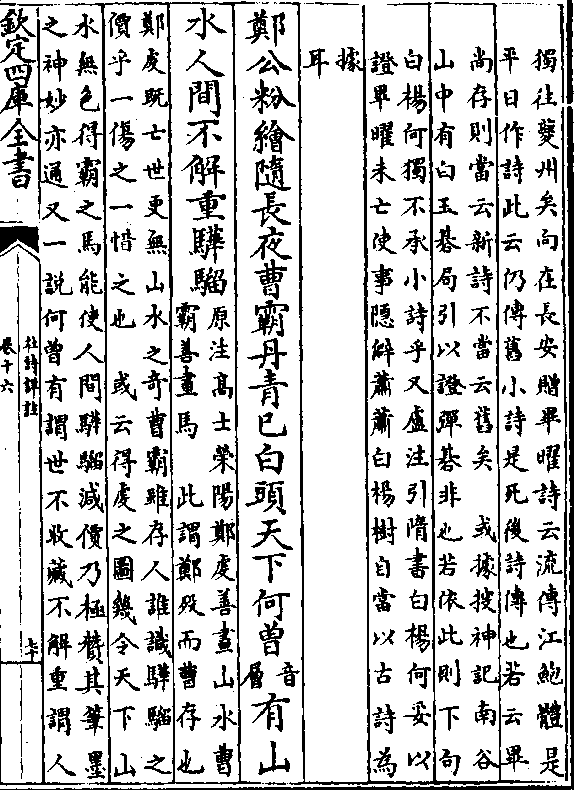 獨往夔州矣向在長安贈畢曜詩云流傳江鮑體是
平日作詩此云仍傳舊小詩是死後詩傳也若云畢
尚存則當云新詩不當云舊矣　或據搜神記南谷
山中有白玉碁局引以證彈碁非也若依此則下句
白楊何獨不承小詩乎又盧注引隋書白楊何妥以
證畢曜未亡使事隱僻蕭蕭白楊樹自當以古詩為
據
耳
鄭公粉繪隨長夜曹霸丹青已白頭天下何曾
音
層
有山
水人間不解重驊騮
原注高士榮陽鄭虔善畫山水曹
霸善畫馬　此謂鄭殁而曹存也
鄭虔既亡世更無山水之奇曹霸雖存人誰識驊騮之
價乎一傷之一惜之也　或云得虔之圖幾令天下山
水無色得霸之馬能使人間驊騮減價乃極贊其筆墨
之神妙亦通又一說何曾有謂世不收藏不解重謂人
欽定四庫全書
杜詩詳註
卷十六
七十